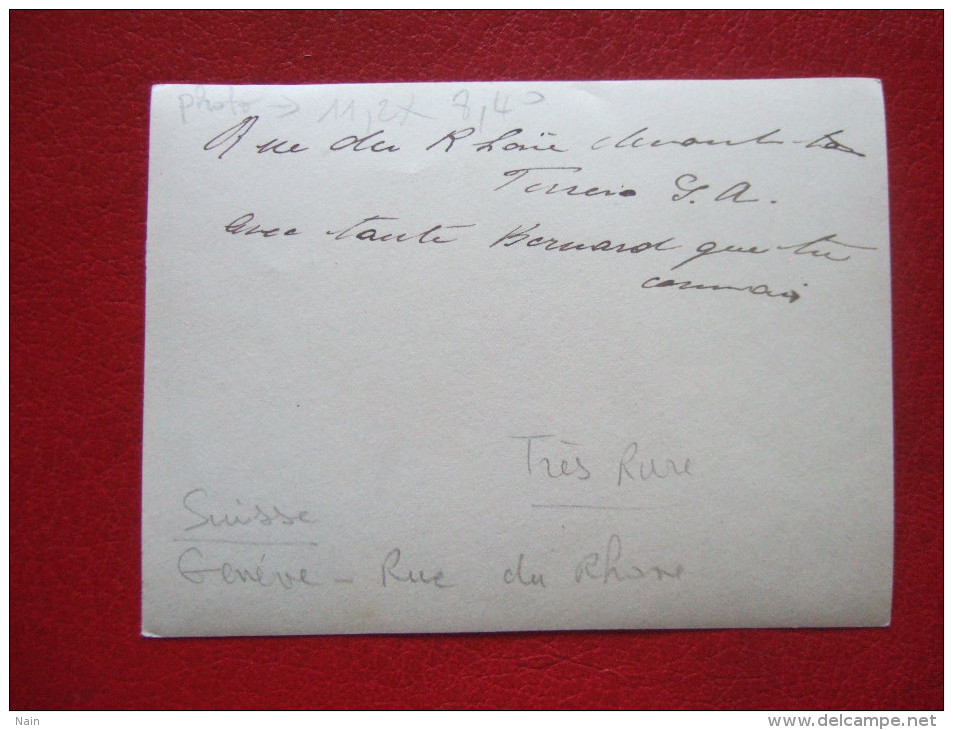 photo → 11,2 X 8,4
Rue du Rhône devant la
S. A.
avec tante Bernard que tu
connais
Très Rare
Suisse
Genéve - Rue du Rhone
Nain
www.delcampe.net